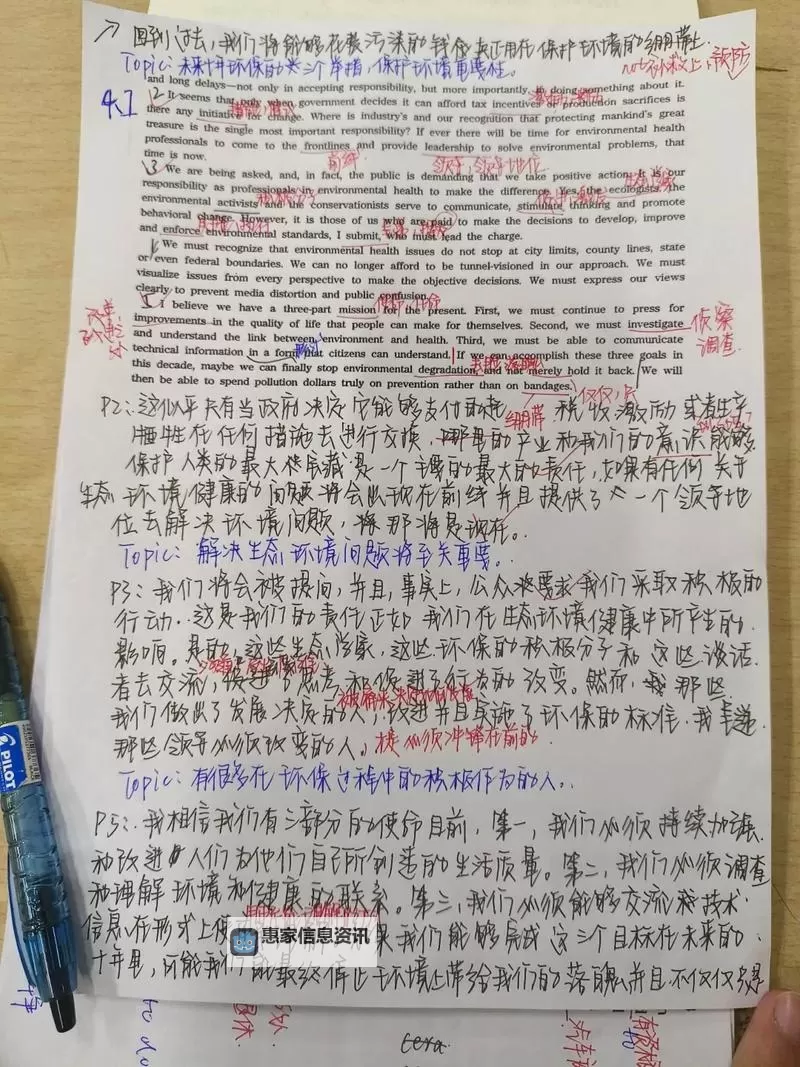 回到过去,我们将能够在被污染的钱金真正用在保护环境的绷带上
Topic: 未来十年环保的三个举措,保护环境重要性。
not 预防
and long delays—not only in accepting responsibility, but more importantly, in doing something about it.
2 It seems that only when government decides it can afford tax incentives or production sacrifices is
there any initiative for change. Where is industry's and our recognition that protecting mankind's great
treasure is the single most important responsibility? If ever there will be time for environmental health
professionals to come to the frontlines and provide leadership to solve environmental problems, that
time is now.
前线 领导,领导地位
3 We are being asked, and, in fact, the public is demanding that we take positive action. It is our
responsibility as professionals in environmental health to make the difference. Yes, the ecologists, the
environmental activists and the conservationists serve to communicate, stimulate thinking and promote
behavioral change. However, it is those of us who are paid to make the decisions to develop, improve
and enforce environmental standards, I submit, who must lead the charge.
We must recognize that environmental health issues do not stop at city limits, county lines, state
or even federal boundaries. We can no longer afford to be tunnel-visioned in our approach. We must
visualize issues from every perspective to make the objective decisions. We must express our views
clearly to prevent media distortion and public confusion.
5 I believe we have a three-part mission for the present. First, we must continue to press for
improvements in the quality of life that people can make for themselves. Second, we must investigate
侦察
调查
and understand the link between environment and health. Third, we must be able to communicate
technical information in a form that citizens can understand. If we can accomplish these three goals in
this decade, maybe we can finally stop environmental degradation, and not merely hold it back. We will
then be able to spend pollution dollars truly on prevention rather than on bandages.
绷带 仅仅,只
P2: 这似乎只有当政府决定它能够支付的起 税收激励或者生产
牺牲在任何措施去进行交换,哪里的产业和我们的意识能够
保护人类的最大财宝藏是一个主要的最大的责任,如果有任何关于
生态环境健康的问题将会出现在前线并且提供了一个领导地
位去解决环境问题,将那将是现在。
Topic: 解决生态环境问题将至关重要。
P3: 我们将会被提问,并且,事实上,公众要求我们采取积极的
行动.这是我们的责任正如我们在生态环境健康中所产生的
影响。是的,这些生态学家,这些环保的积极分子和这些谈话
者去交流,促进了思考,和促进了行为的改变。然而,我那些
我们做出了发展决定的人,改进并且实施了环保的标准.我呈递
那些领导必须改变的人。 必须冲锋在前的
Topic: 有很多在环保过程中的积极作为的人。
P5: 我相信我们有三部分的使命目前,第一,我们必须持续加强
和改进 人们为他们自己所创造的生活质量。第二,我们必须调查
和理解环境和健康的联系。第三,我们必须能够交流 技术
信息在形式上使
惠家信息资讯
果我们能够完成这三个目标在未来的
十年里,可能我们能最终停止环境上带给我们的落魄,并且不仅仅只是